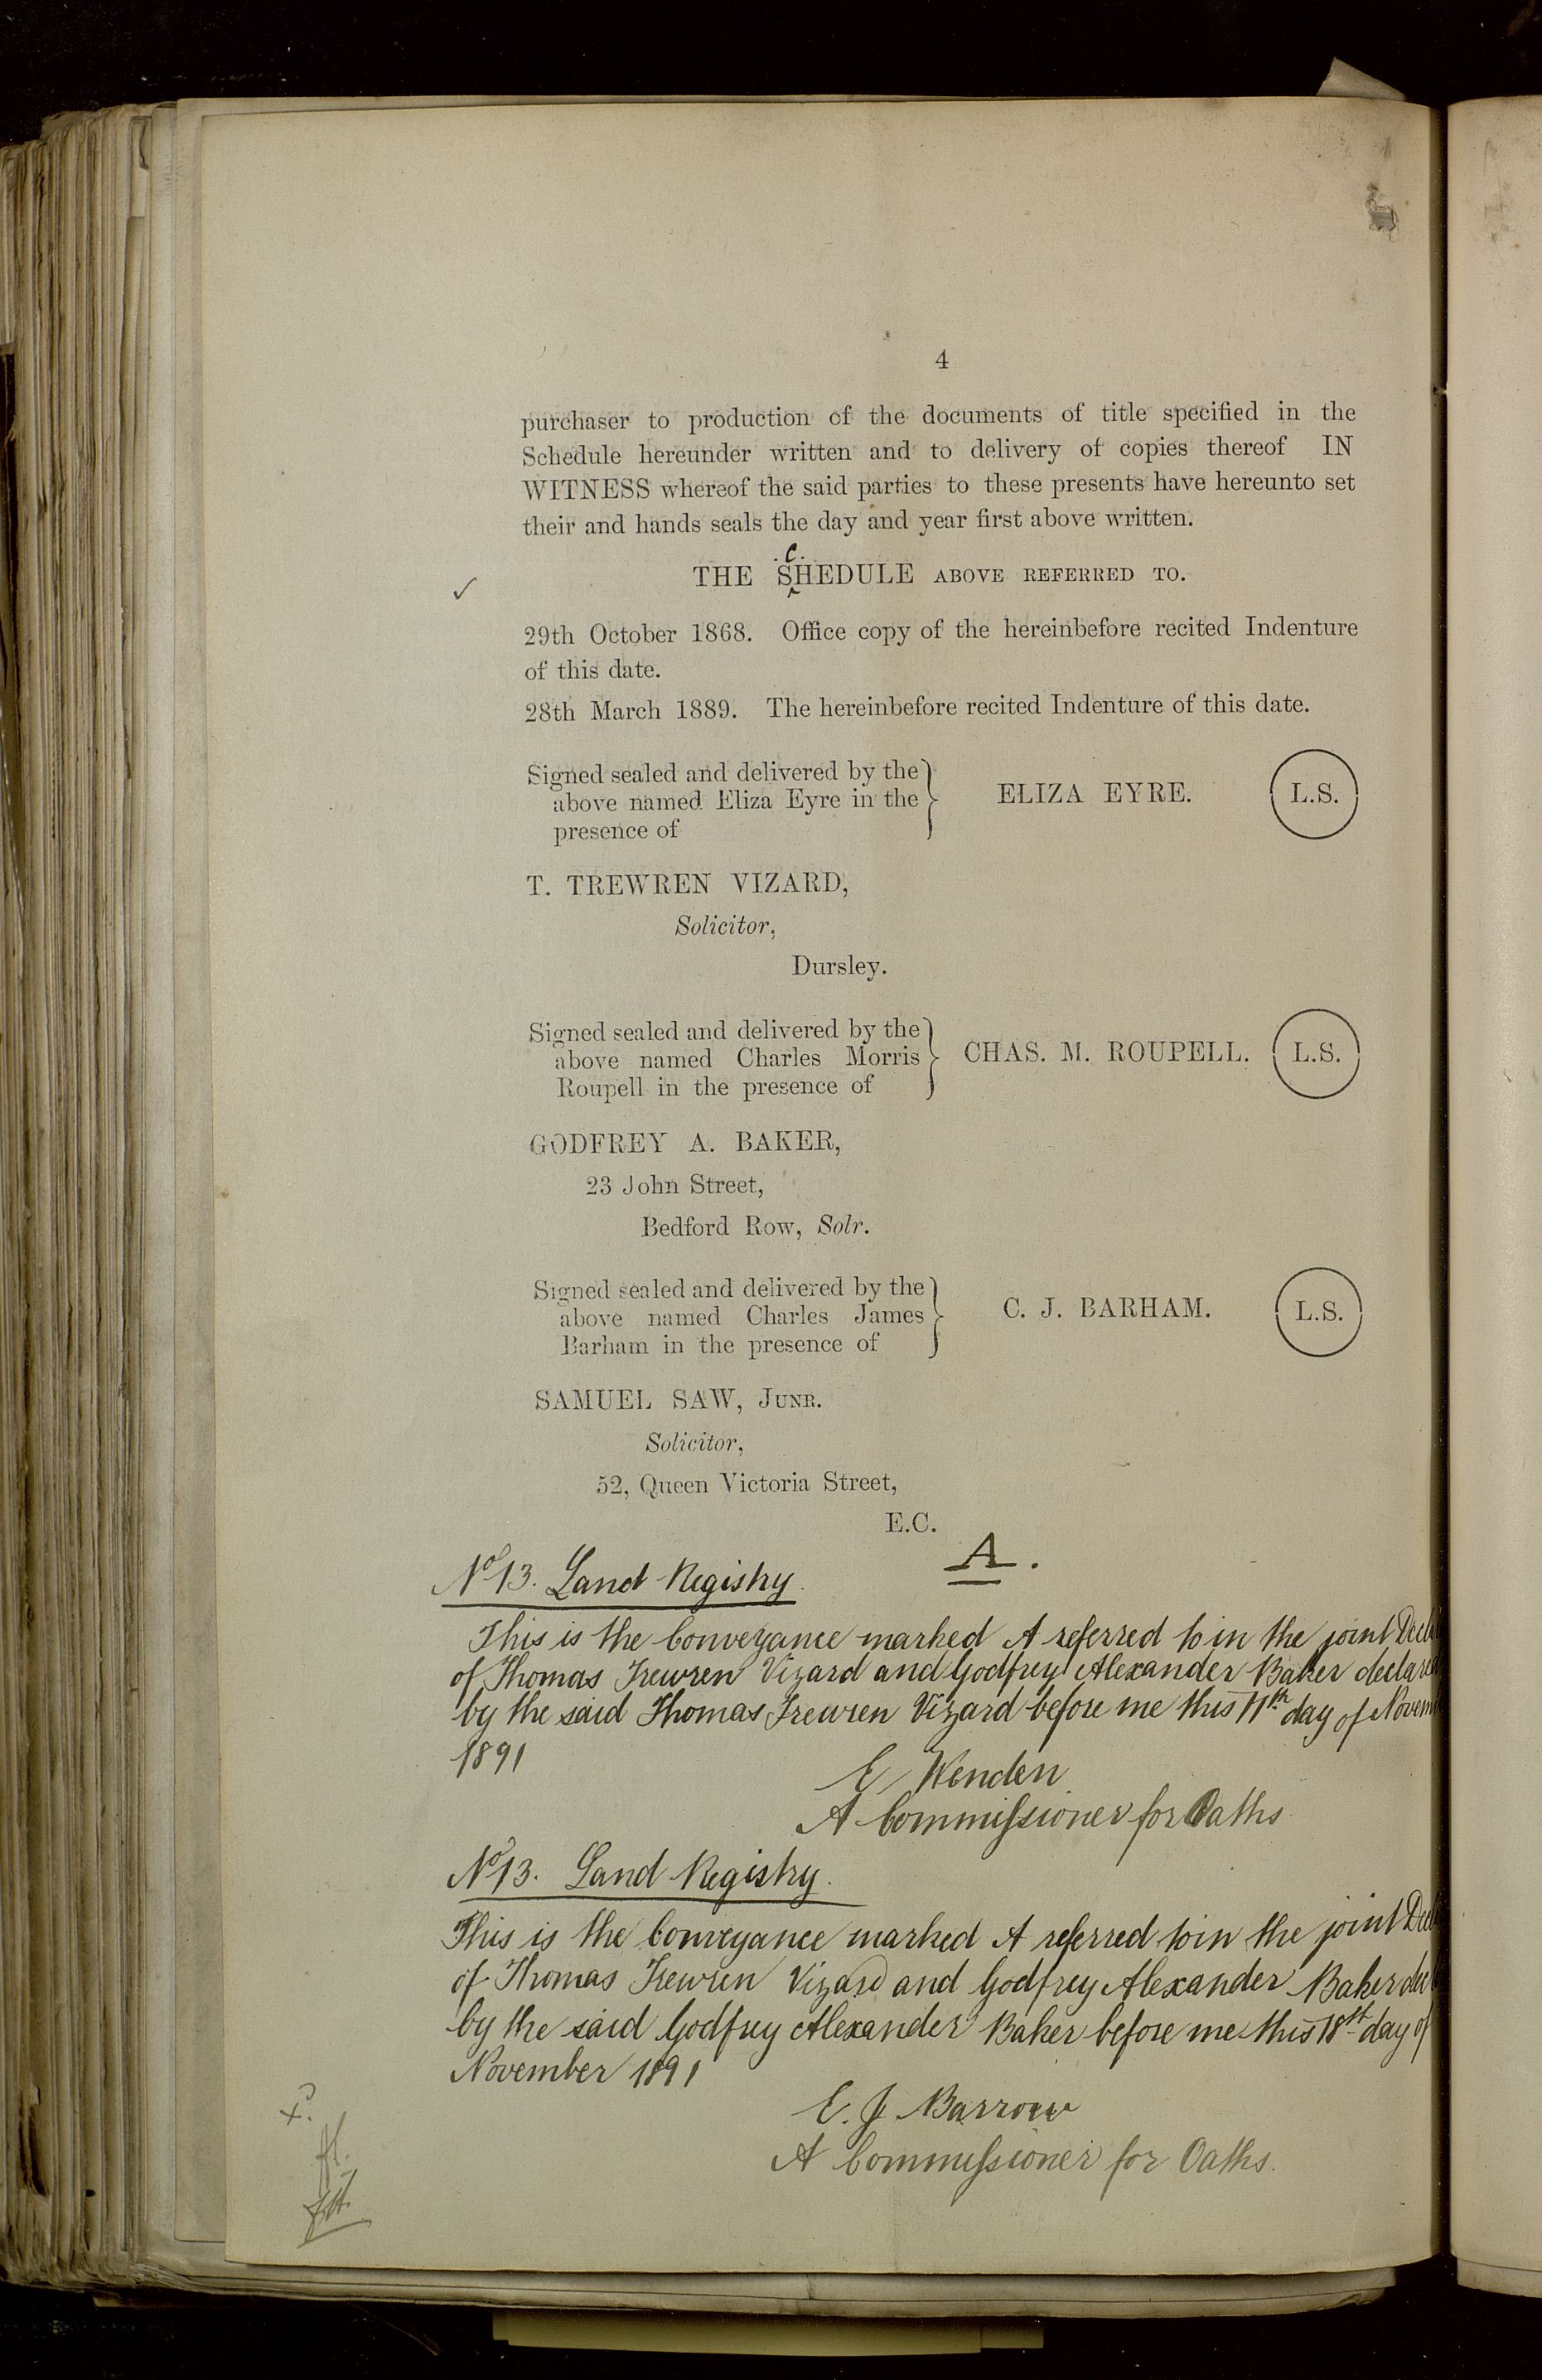 4
purchaser to production of the documents of title specified in the
Schedule hereunder written and to delivery of copies thereof IN
WITNESS whereof the said parties to these presents have hereunto set
their and hands seals the day and year first above written.
THE ScHEDULE ABOVE REFERRED TO.
29th October 1868. Office copy of the hereinbefore recited Indenture
of this date.
28th March 1889. The hereinbefore recited Indenture of this date.
Signed sealed and delivered by the
above named Eliza Eyre in the
presence of
ELIZA EYRE. L.S.
T. TREWREN VIZARD,
Solicitor,
Dursley.
Signed sealed and delivered by the
above named Charles Morris
Roupell in the presence of
CHAS. M. ROUPELL. L.S.
GODFREY A. BAKER,
23 John Street,
Bedford Row, Solr.
Signed sealed and delivered by the
above named Charles James
Barham in the presence of
C. J. BARHAM. L.S.
SAMUEL SAW, JUNR.
Solicitor,
52, Queen Victoria Street,
E.C.
A.
No 13. Land Registry.
This is the Conveyance marked A referred to in the joint
of Thomas Trewren Vizard and Godfrey Alexander Baker declared
by the said Thomas Trewren Vizard before me this 11th day of Novem
1891
E Wenden
A Commissioner for Oaths
No 13. Land Registry.
This is the Conveyance marked A referred to in the joint
of Thomas Trewren Vizard and Godfrey Alexander Baker
by the said Godfrey Alexander Baker before me this 18th day of
November 1891
E. J Barrow
A Commissioner for Oaths.